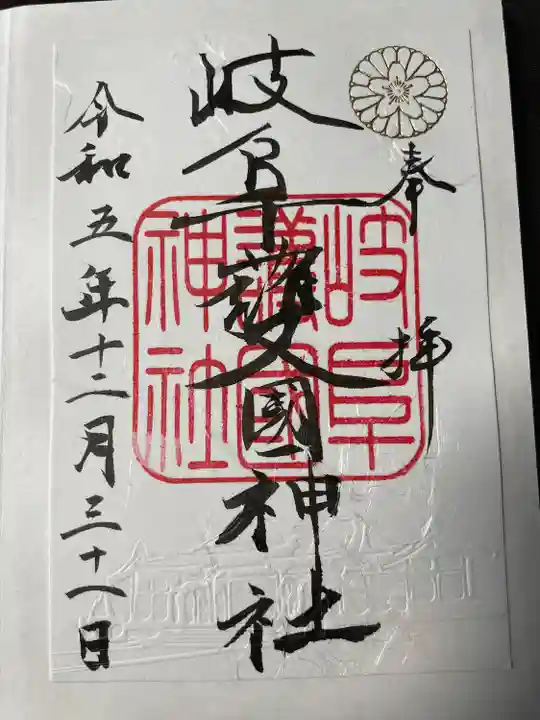 奉拝
岐阜護國神社
岐阜
護國
神社
令和五年十二月三十一日